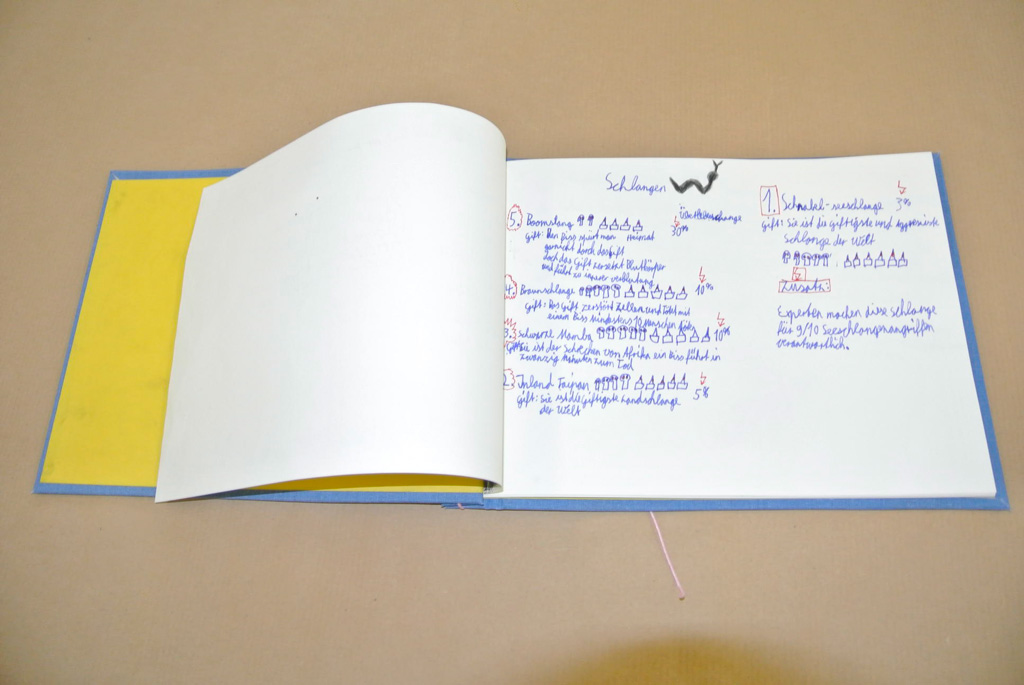 Schlangen
5. Boomslang
30%
gift: Den Biss spürt man
garnicht durch das gift
doch das Gift zersetzt Blutkörper
und führt zu innerer verblutung
4. Braunschlange 10%
gift: Das Gift zerstört Zellen und tötet mit
einem Biss mindestens 10 Menschen
3. Schwarze Mamba 10%
Sie ist der Schrecken von Afrika ein Biss führt in
zwanzig Minuten zum Tod
2. Inland Taipan
5%
gift: Sie ist die Giftigste Landschlange
der Welt
1. Schnabel-seeschlange 3%
gift: Sie ist die giftigste und Aggressivste
Schlange der Welt
Zusatz:
Experten machen diese Schlange
für 9/10 Seeschlangenangriffen
verantwortlich.